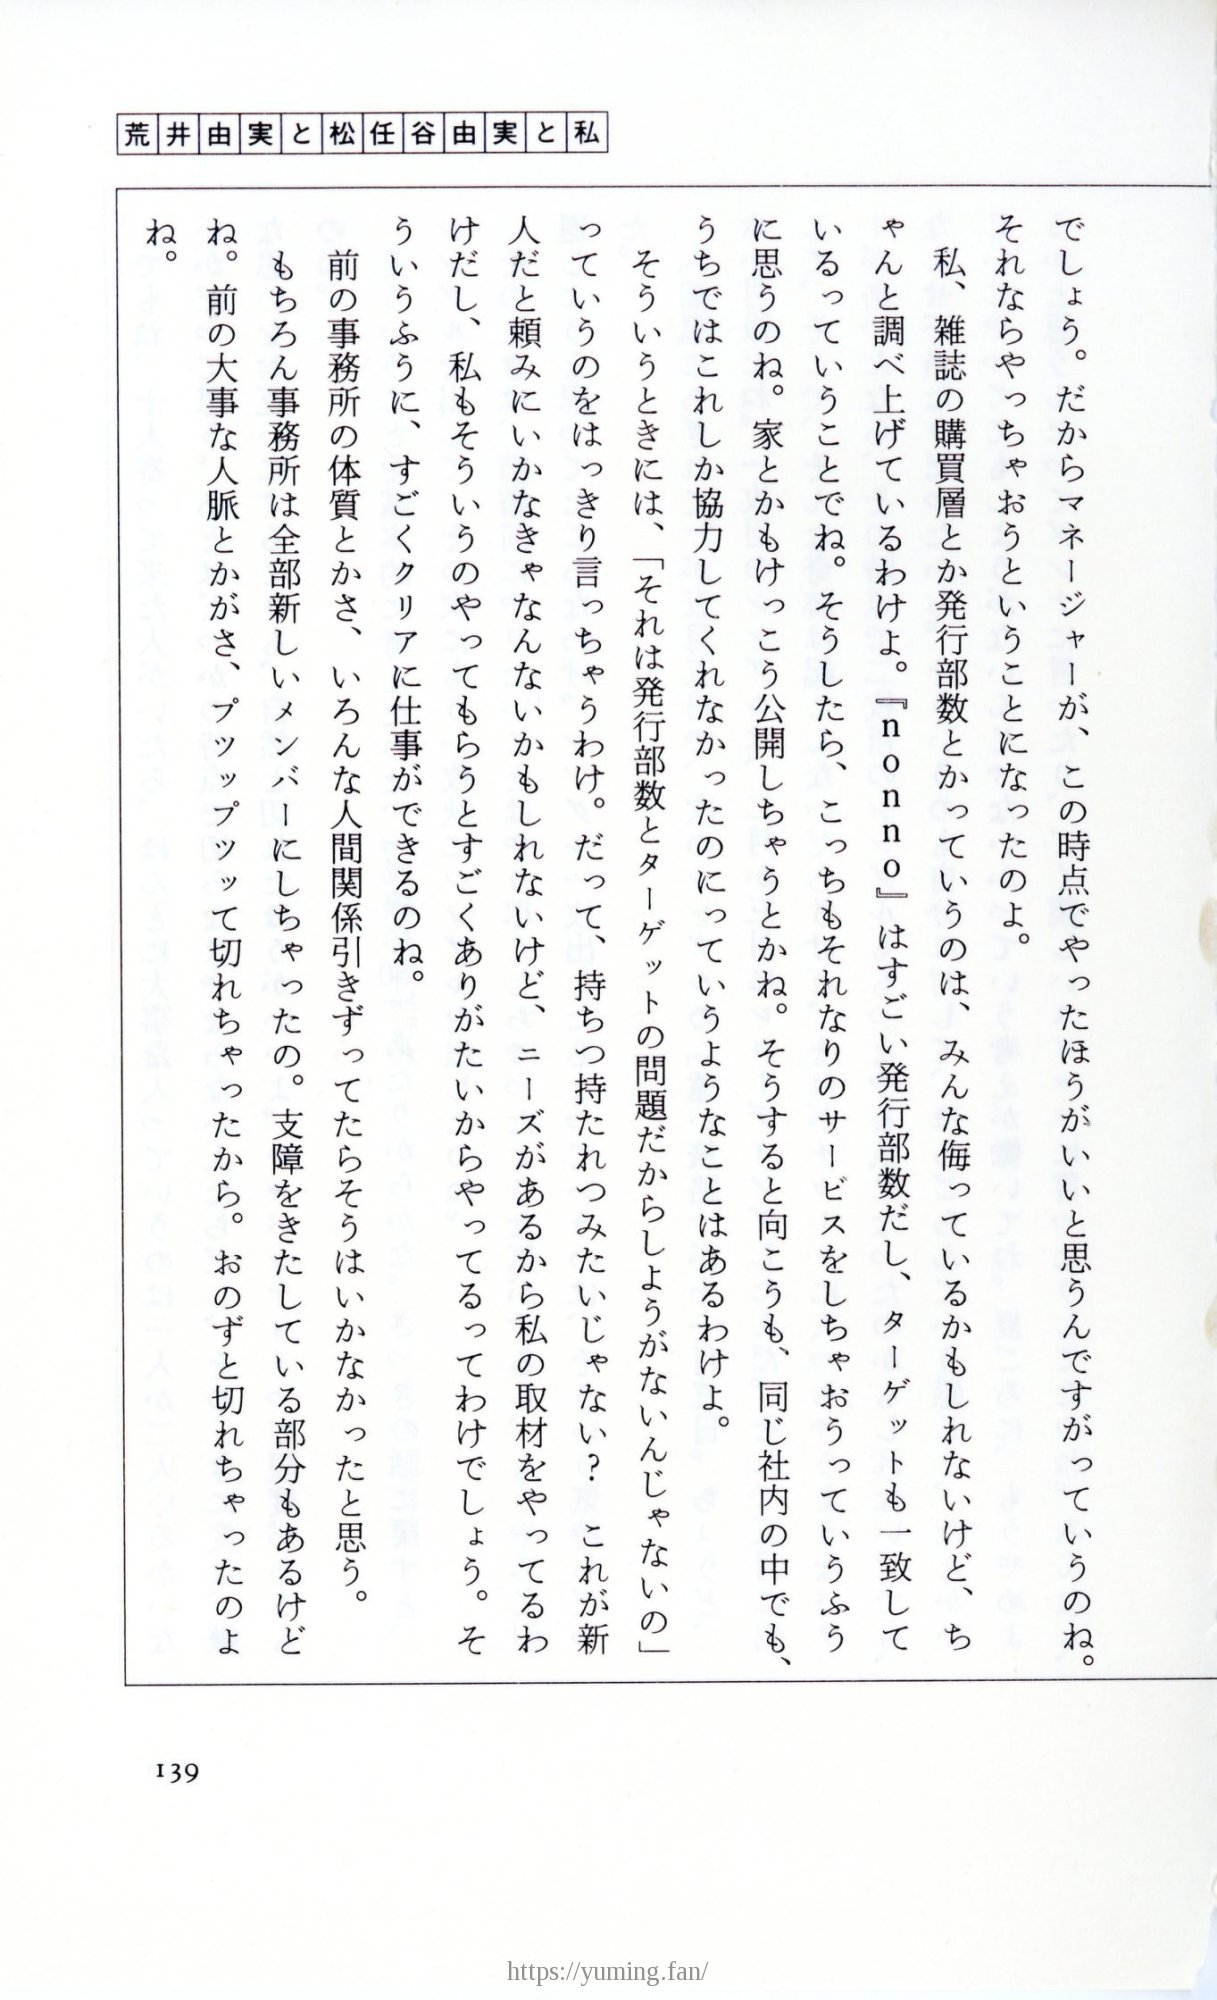 荒井由実と松任谷由実と私
でしょう。だからマネージャーが、この時点でやったほうがいいと思うんですがっていうのね。
それならやっちゃおうということになったのよ。
私、雑誌の購買層とか発行部数とかっていうのは、みんな侮っているかもしれないけど、ち
ゃんと調べ上げているわけよ。『nonno』はすごい発行部数だし、ターゲットも一致して
いるっていうことでね。そうしたら、こっちもそれなりのサービスをしちゃおうっていうふう
に思うのね。家とかもけっこう公開しちゃうとかね。そうすると向こうも、同じ社内の中でも、
うちではこれしか協力してくれなかったのにっていうようなことはあるわけよ。
そういうときには、「それは発行部数とターゲットの問題だからしようがないんじゃないの」
っていうのをはっきり言っちゃうわけ。だって、持ちつ持たれつみたいじゃない? これが新
人だと頼みにいかなきゃなんないかもしれないけど、ニーズがあるから私の取材をやってるわ
けだし、私もそういうのやってもらうとすごくありがたいからやってるってわけでしょう。そ
ういうふうに、すごくクリアに仕事ができるのね。
前の事務所の体質とかさ、いろんな人間関係引きずってたらそうはいかなかったと思う。
もちろん事務所は全部新しいメンバーにしちゃったの。支障をきたしている部分もあるけど
ね。前の大事な人脈とかがさ、プツップツッて切れちゃったから。おのずと切れちゃったのよ
ね。
139
https://yuming.fan/